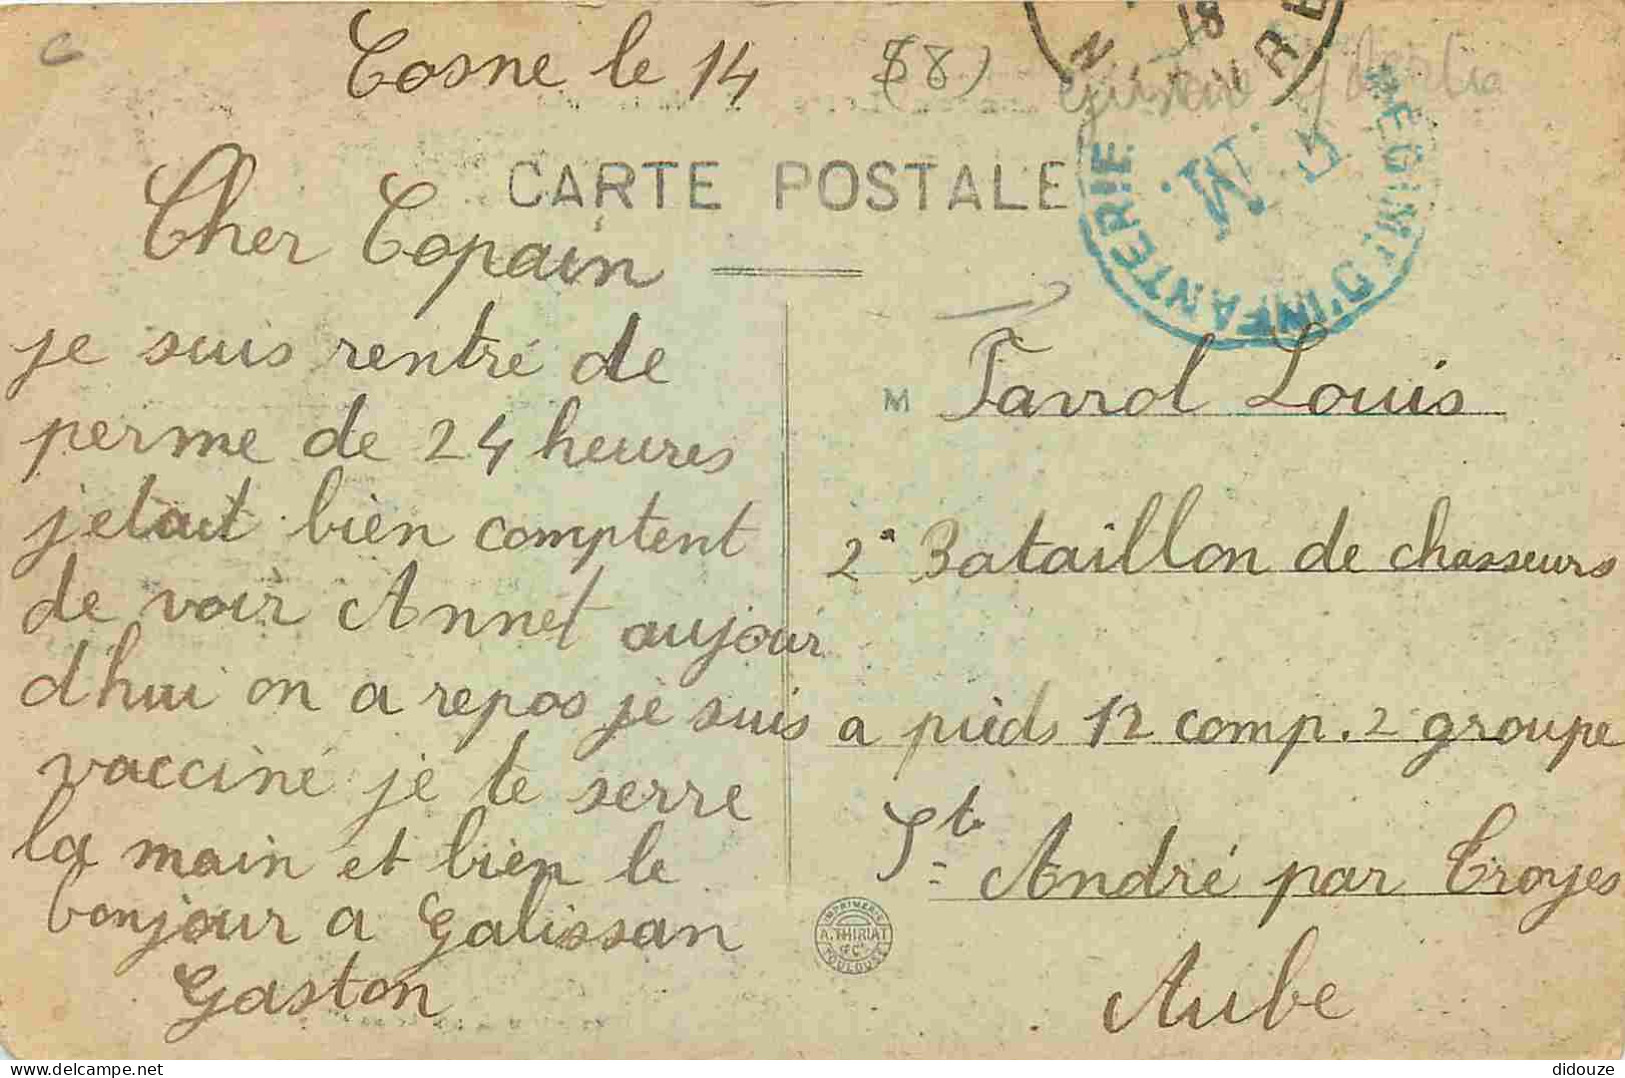 Cosne le 14 (58)
18
REGIMT D'INFANTERIE
CARTE POSTALE
Cher Copain
je suis rentré de
perme de 24 heures
jetait bien comptent
de voir Annet aujour
d'hui on a repos je suis
vacciné je te serre
la main et bien le
bonjour a Galissan
Gaston
M Favrol Louis
2e Bataillon de chasseurs
a pieds 12 comp. 2 groupe
St André par Troyes
Aube
IMPRIMERIE
A. THIRIAT
& Cie
TOULOUSE
didouze